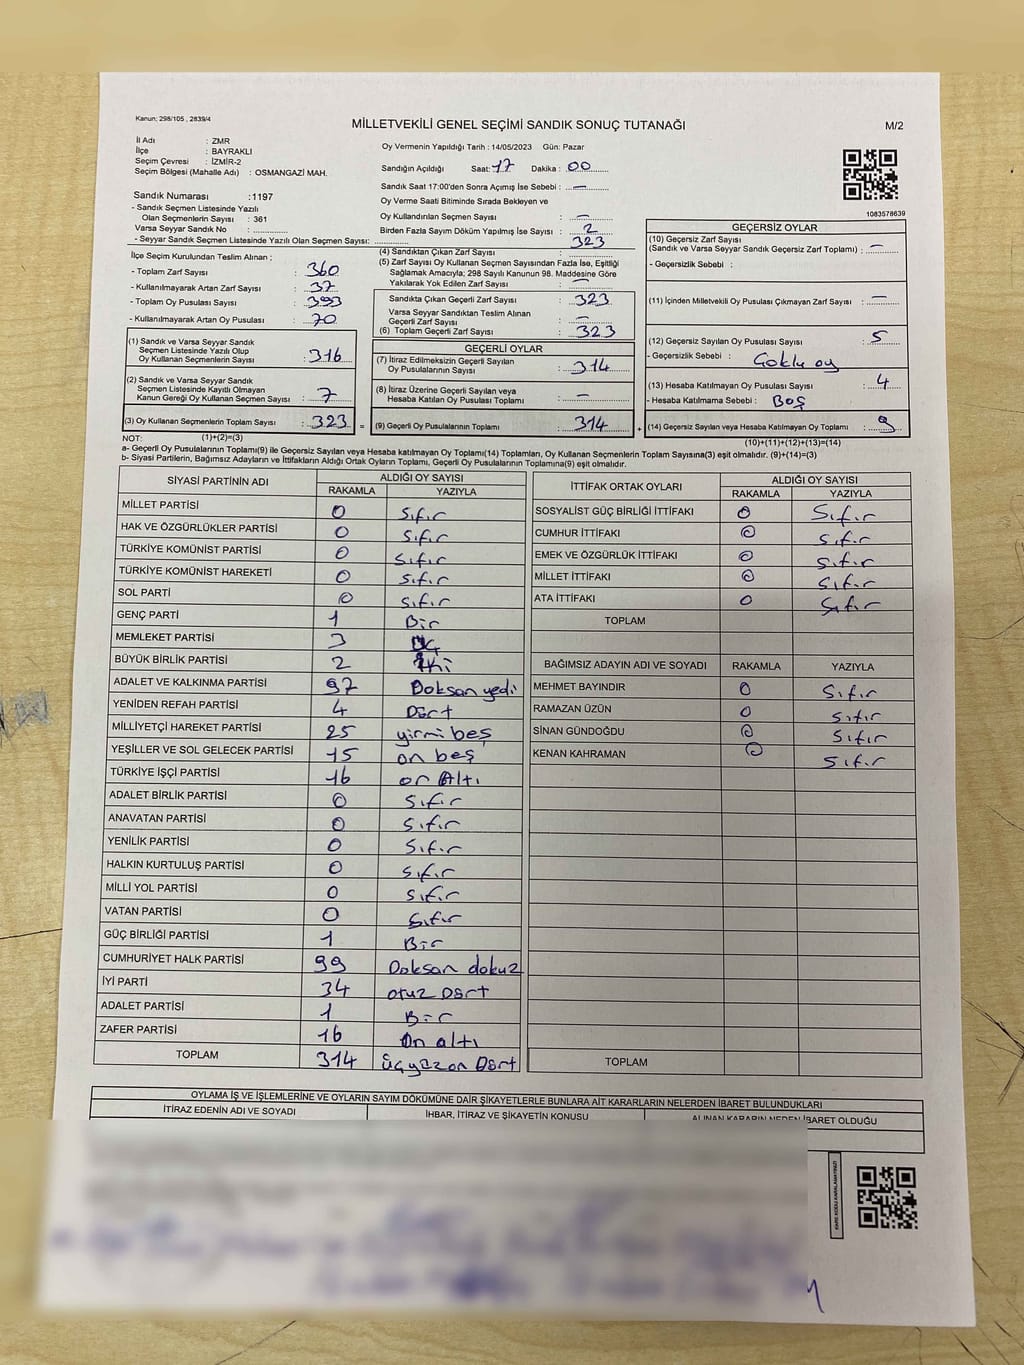 Kanun; 298/105 , 2839/4
MİLLETVEKİLİ GENEL SEÇİMİ SANDIK SONUÇ TUTANAĞI
M/2
İl Adı : ZMR
İlçe : BAYRAKLI
Seçim Çevresi : İZMİR-2
Seçim Bölgesi (Mahalle Adı) : OSMANGAZİ MAH.
Sandık Numarası :1197
- Sandık Seçmen Listesinde Yazılı
Olan Seçmenlerin Sayısı : 361
Varsa Seyyar Sandık No :
- Seyyar Sandık Seçmen Listesinde Yazılı Olan Seçmen Sayısı:
Oy Vermenin Yapıldığı Tarih : 14/05/2023 Gün: Pazar
Sandığın Açıldığı Saat: 17 Dakika : 00
Sandık Saat 17:00'den Sonra Açımış İse Sebebi : —
Oy Verme Saati Bitiminde Sırada Bekleyen ve
Oy Kullandırılan Seçmen Sayısı : —
Birden Fazla Sayım Döküm Yapılmış İse Sayısı : 2
1083578639
İlçe Seçim Kurulundan Teslim Alınan ;
- Toplam Zarf Sayısı : 360
- Kullanılmayarak Artan Zarf Sayısı : 37
- Toplam Oy Pusulası Sayısı : 393
- Kullanılmayarak Artan Oy Pusulası : 70
(1) Sandık ve Varsa Seyyar Sandık
Seçmen Listesinde Yazılı Olup
Oy Kullanan Seçmenlerin Sayısı : 316
(2) Sandık ve Varsa Seyyar Sandık
Seçmen Listesinde Kayıtlı Olmayan
Kanun Gereği Oy Kullanan Seçmen Sayısı : 7
(3) Oy Kullanan Seçmenlerin Toplam Sayısı : 323
(1)+(2)=(3)
(4) Sandıktan Çıkan Zarf Sayısı : 323
(5) Zarf Sayısı Oy Kullanan Seçmen Sayısından Fazla İse, Eşitliği
Sağlamak Amacıyla; 298 Sayılı Kanunun 98. Maddesine Göre
Yakılarak Yok Edilen Zarf Sayısı : —
Sandıkta Çıkan Geçerli Zarf Sayısı : 323
Varsa Seyyar Sandıktan Teslim Alınan
Geçerli Zarf Sayısı : —
(6) Toplam Geçerli Zarf Sayısı : 323
GEÇERLİ OYLAR
(7) İtiraz Edilmeksizin Geçerli Sayılan
Oy Pusulalarının Sayısı : 314
(8) İtiraz Üzerine Geçerli Sayılan veya
Hesaba Katılan Oy Pusulası Toplamı : —
= (9) Geçerli Oy Pusulalarının Toplamı : 314 +
GEÇERSİZ OYLAR
(10) Geçersiz Zarf Sayısı
(Sandık ve Varsa Seyyar Sandık Geçersiz Zarf Toplamı) : —
- Geçersizlik Sebebi :
(11) İçinden Milletvekili Oy Pusulası Çıkmayan Zarf Sayısı : —
(12) Geçersiz Sayılan Oy Pusulası Sayısı : 5
- Geçersizlik Sebebi : Çoklu oy
(13) Hesaba Katılmayan Oy Pusulası Sayısı : 4
- Hesaba Katılmama Sebebi : Boş
(14) Geçersiz Sayılan veya Hesaba Katılmayan Oy Toplamı : 9
(10)+(11)+(12)+(13)=(14)
NOT:
a- Geçerli Oy Pusulalarının Toplamı(9) ile Geçersiz Sayılan veya Hesaba katılmayan Oy Toplamı(14) Toplamları, Oy Kullanan Seçmenlerin Toplam Sayısına(3) eşit olmalıdır. (9)+(14)=(3)
b- Siyasi Partilerin, Bağımsız Adayların ve İttifakların Aldığı Ortak Oyların Toplamı, Geçerli Oy Pusulalarının Toplamına(9) eşit olmalıdır.
SİYASİ PARTİNİN ADI ALDIĞI OY SAYISI
RAKAMLA YAZIYLA
MİLLET PARTİSİ 0 Sıfır
HAK VE ÖZGÜRLÜKLER PARTİSİ 0 Sıfır
TÜRKİYE KOMÜNİST PARTİSİ 0 Sıfır
TÜRKİYE KOMÜNİST HAREKETİ 0 Sıfır
SOL PARTİ 0 Sıfır
GENÇ PARTİ 1 Bir
MEMLEKET PARTİSİ 3 Üç
BÜYÜK BİRLİK PARTİSİ 2 İki
ADALET VE KALKINMA PARTİSİ 97 Doksan yedi
YENİDEN REFAH PARTİSİ 4 Dört
MİLLİYETÇİ HAREKET PARTİSİ 25 yirmi beş
YEŞİLLER VE SOL GELECEK PARTİSİ 15 on beş
TÜRKİYE İŞÇİ PARTİSİ 16 on Altı
ADALET BİRLİK PARTİSİ 0 Sıfır
ANAVATAN PARTİSİ 0 Sıfır
YENİLİK PARTİSİ 0 Sıfır
HALKIN KURTULUŞ PARTİSİ 0 Sıfır
MİLLİ YOL PARTİSİ 0 Sıfır
VATAN PARTİSİ 0 Sıfır
GÜÇ BİRLİĞİ PARTİSİ 1 Bir
CUMHURİYET HALK PARTİSİ 99 Doksan dokuz
İYİ PARTİ 34 otuz Dört
ADALET PARTİSİ 1 Bir
ZAFER PARTİSİ 16 On altı
TOPLAM 314 Üçyüzon Dört
İTTİFAK ORTAK OYLARI ALDIĞI OY SAYISI
RAKAMLA YAZIYLA
SOSYALİST GÜÇ BİRLİĞİ İTTİFAKI 0 Sıfır
CUMHUR İTTİFAKI 0 Sıfır
EMEK VE ÖZGÜRLÜK İTTİFAKI 0 Sıfır
MİLLET İTTİFAKI 0 Sıfır
ATA İTTİFAKI 0 Sıfır
TOPLAM
BAĞIMSIZ ADAYIN ADI VE SOYADI RAKAMLA YAZIYLA
MEHMET BAYINDIR 0 Sıfır
RAMAZAN ÜZÜN 0 Sıfır
SİNAN GÜNDOĞDU 0 Sıfır
KENAN KAHRAMAN 0 Sıfır
TOPLAM
OYLAMA İŞ VE İŞLEMLERİNE VE OYLARIN SAYIM DÖKÜMÜNE DAİR ŞİKAYETLERLE BUNLARA AİT KARARLARIN NELERDEN İBARET BULUNDUKLARI
İTİRAZ EDENİN ADI VE SOYADI İHBAR, İTİRAZ VE ŞİKAYETİN KONUSU ALINAN KARARIN NEDEN İBARET OLDUĞU